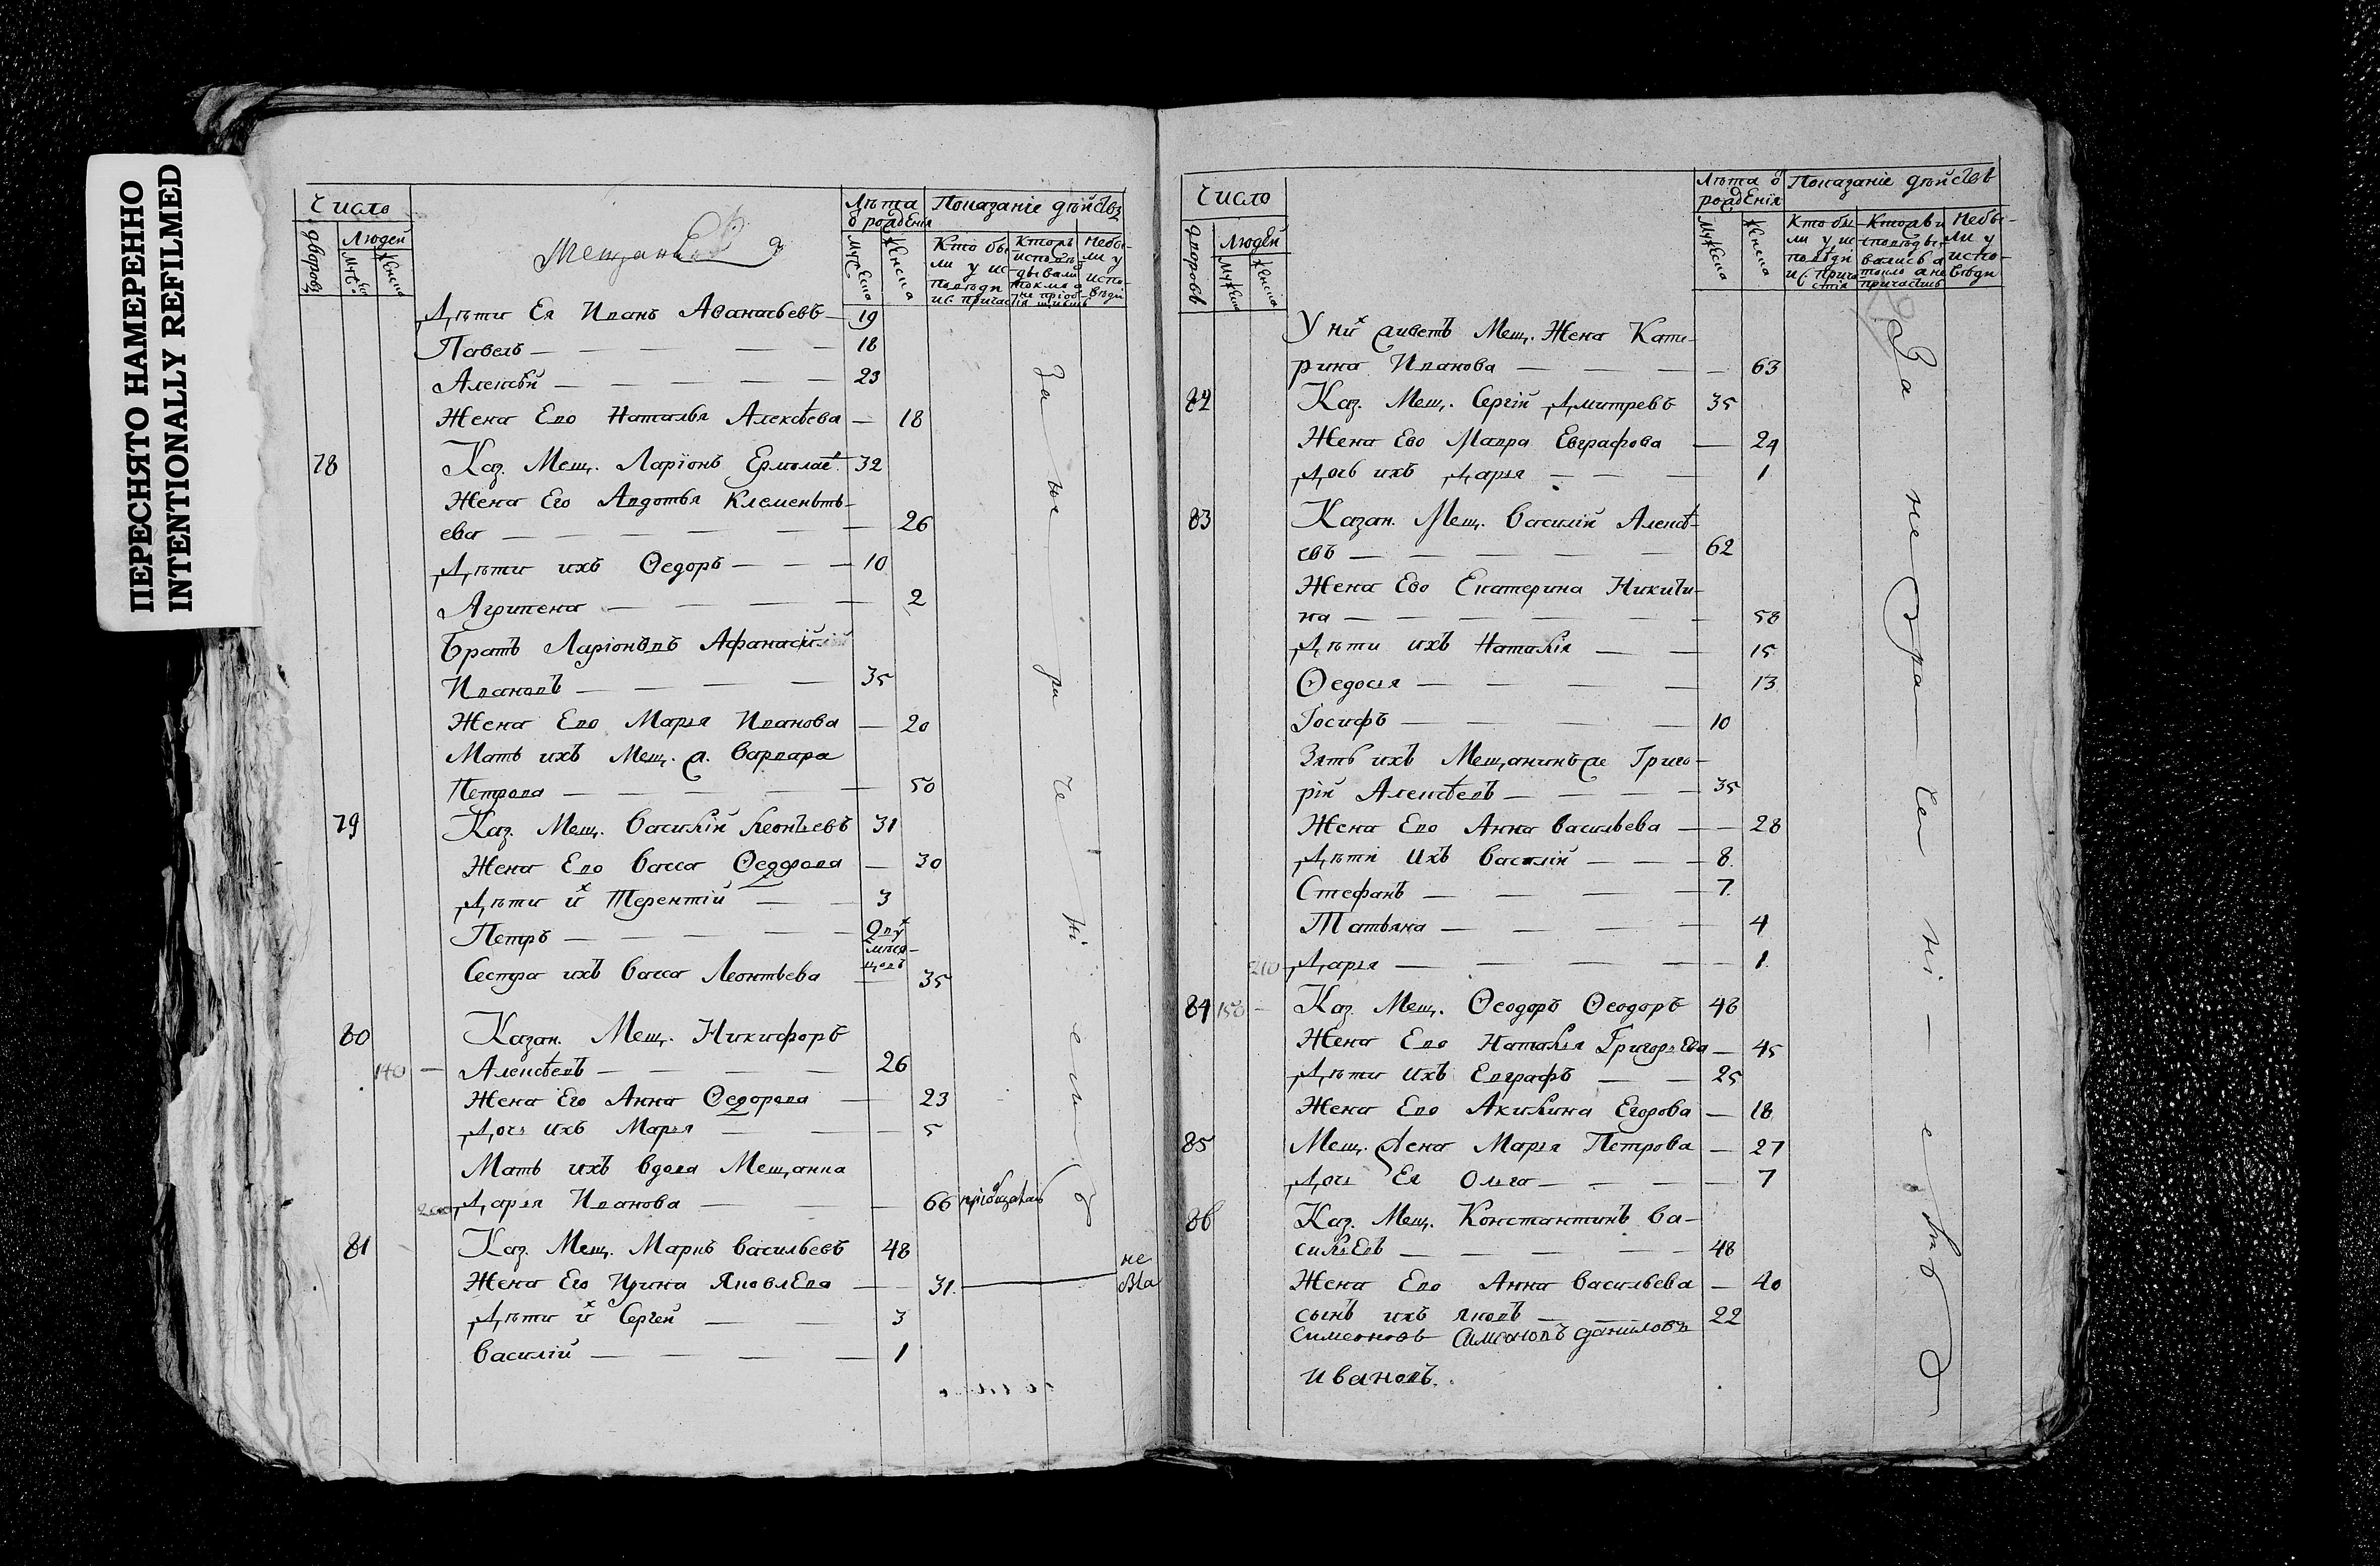 ПЕРЕСНЯТО НАМЕРЕННО
INTENTIONALLY REFILMED
Число
дворовъ
Людей
Мещанъ
Лѣта ѿ рождЕнія
Показаніе дѣйствъ
Кто бы-
ли у ис-
повѣди
и с. прича-
стія
Дѣти Ея Иванъ Аѳанасьевъ — 19
Павелъ — 18
Алексѣй — 23
Жена Ево Наталья Алексѣева — 18
78 Каз. Мещ. Ларіонъ Ермолае. 32
Жена Его Авдотья Клеменьть-
ева — 26
Дѣти ихъ Ѳедоръ — 10
Агрипена — 2
Братъ Ларіоновъ Афанасій
Ивановъ — 35
Жена Ево Марья Иванова — 20
Мать ихъ Мещ. а. Варвара
Петрова — 50
79 Каз. Мещ. Василій Леонтьевъ 31
Жена Ево Васса Ѳедорова — 30
Дѣти их Терентій — 3
Петръ — Двух
мѣся-
цовъ
Сестра ихъ Васса Леонтьева — 35
80 Казан. Мещ. Никифоръ
140 — Алексѣевъ — 26
Жена Его Анна Ѳедорова — 23
Дочь ихъ Марья — 5
Мать ихъ вдова Мещанка
200 Дарья Иванова — 66
81 Каз. Мещ. Маркъ Васильевъ 48
Жена Его Ирина ЯковлЕва — 31. — не
Дѣти их Сергей — 3
Василій — 1
За не ра че ні е мъ
Число
дворовъ
Людей
Лѣта ѿ рождЕнія
Показаніе дѣйствъ
Кто бы-
ли у ис-
повѣди
и с. прича-
стія
Кто исповѣды-
вались а
токмо а не
причастил
Небы-
ли у
испо-
вѣди
У них живетъ Мещ. Жена Кате-
рина Иванова — 63
82 Каз. Мещ. Сергій Дмитревъ 35
Жена Ево Мавра Евграфова — 24
Дочь ихъ Дарья — 1
83 Казан. Мещ. Василій Алексѣ-
евъ — 62
Жена Ево Екатерина Никити-
на — 58
Дѣти ихъ Наталія — 15
Ѳедосья — 13
Іосифъ — 10
Зять ихъ Мещанинъ же Григо-
рій Алексѣевъ — 35
Жена Ево Анна Васильева — 28
Дѣти Ихъ Василій — 8
Стефанъ — 7
Татьяна — 4
210 Дарья — 1
84 150 — Каз. Мещ. Ѳеодоръ Ѳеодоръ 48
Жена Ево Наталья ГригорьЕва — 45
Дѣти Ихъ Евграфъ — 25
Жена Ево Акилина Егорова — 18
85 Мещ. Жена Марья Петрова — 27
Дочь Ея Ольга — 7
86 Каз. Мещ. Константинъ Ва-
сильЕвъ — 48
Жена Ево Анна Васильева — 40
сынъ ихъ Яковъ — 22
Симеоновъ Симеоновъ Даниловъ
Ивановъ.
За не ра че ні е мъ